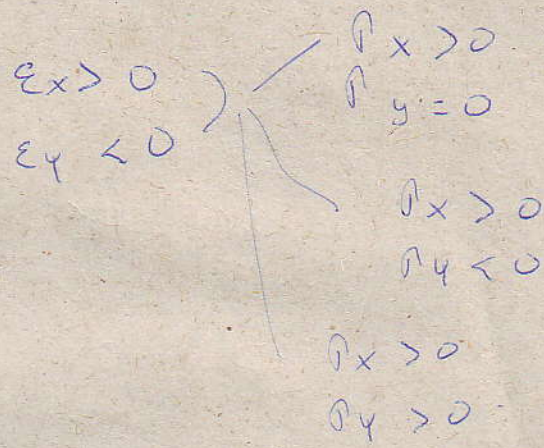 εx > 0
εy < 0
σx > 0
σy = 0
σx > 0
σy < 0
σx > 0
σy > 0